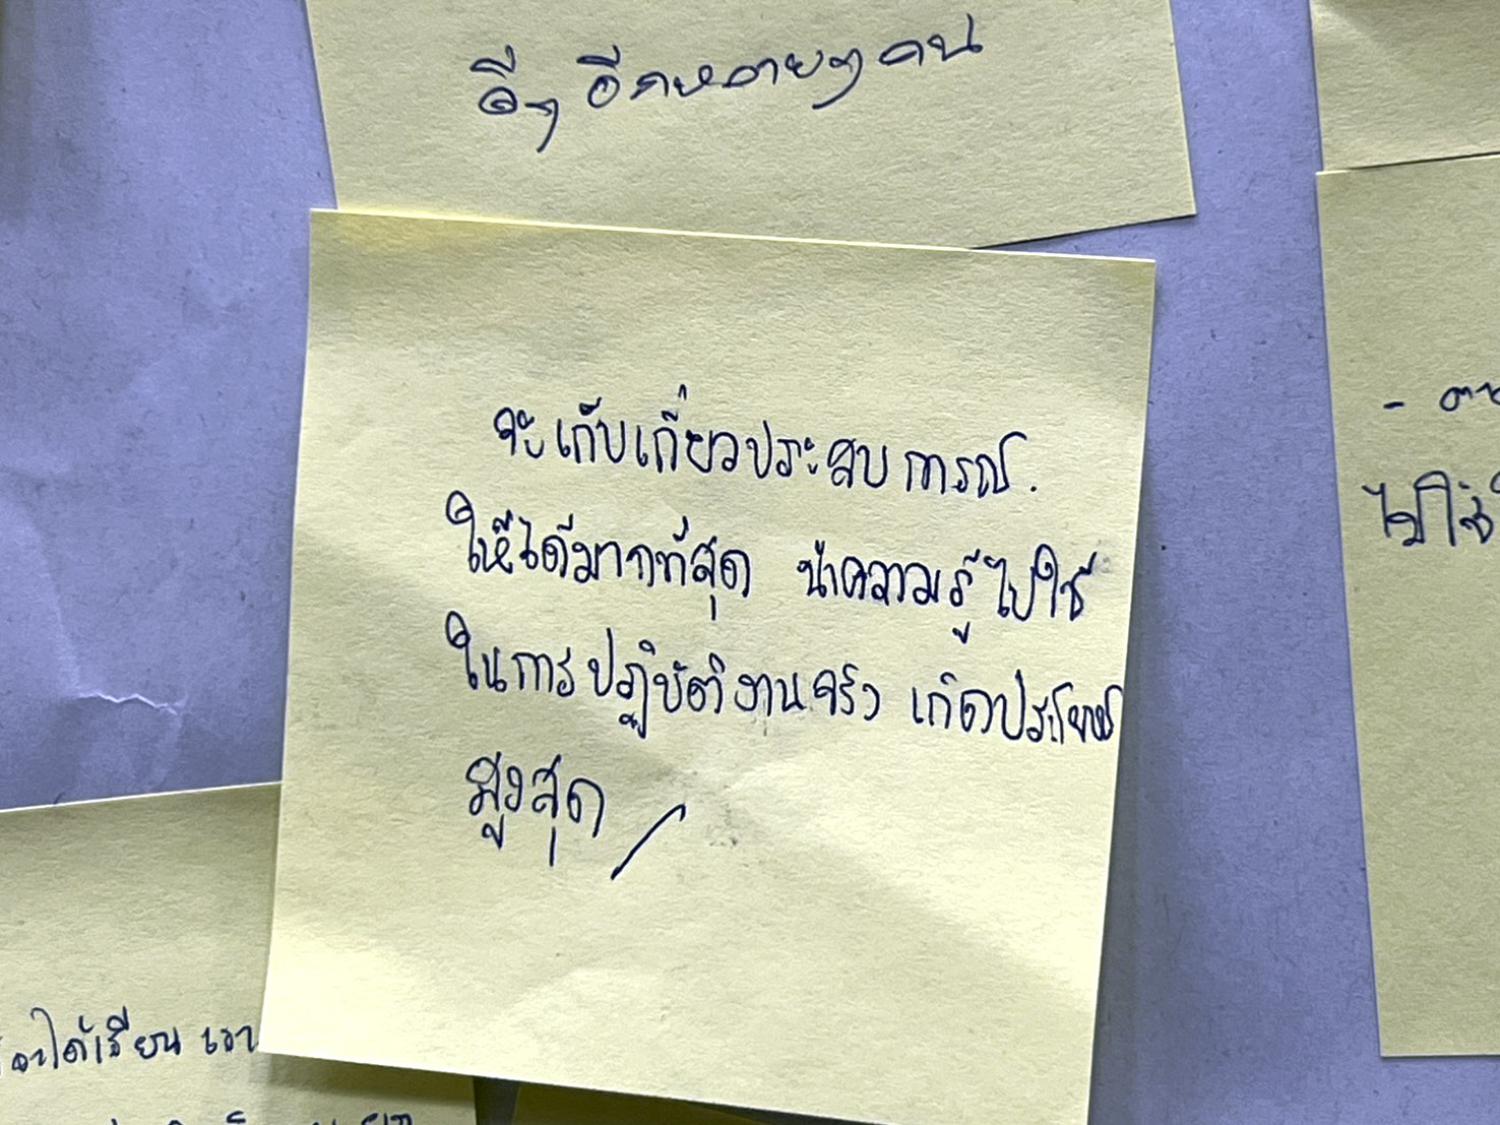 ดีๆ อีกหลายๆ คน
จะเก็บเกี่ยวประสบการณ์.
ให้ได้มากที่สุด นำความรู้ไปใช้
ในการปฏิบัติงานจริง เกิดประโยชน์
สูงสุด /
ไม่ใช่
ได้เรียน